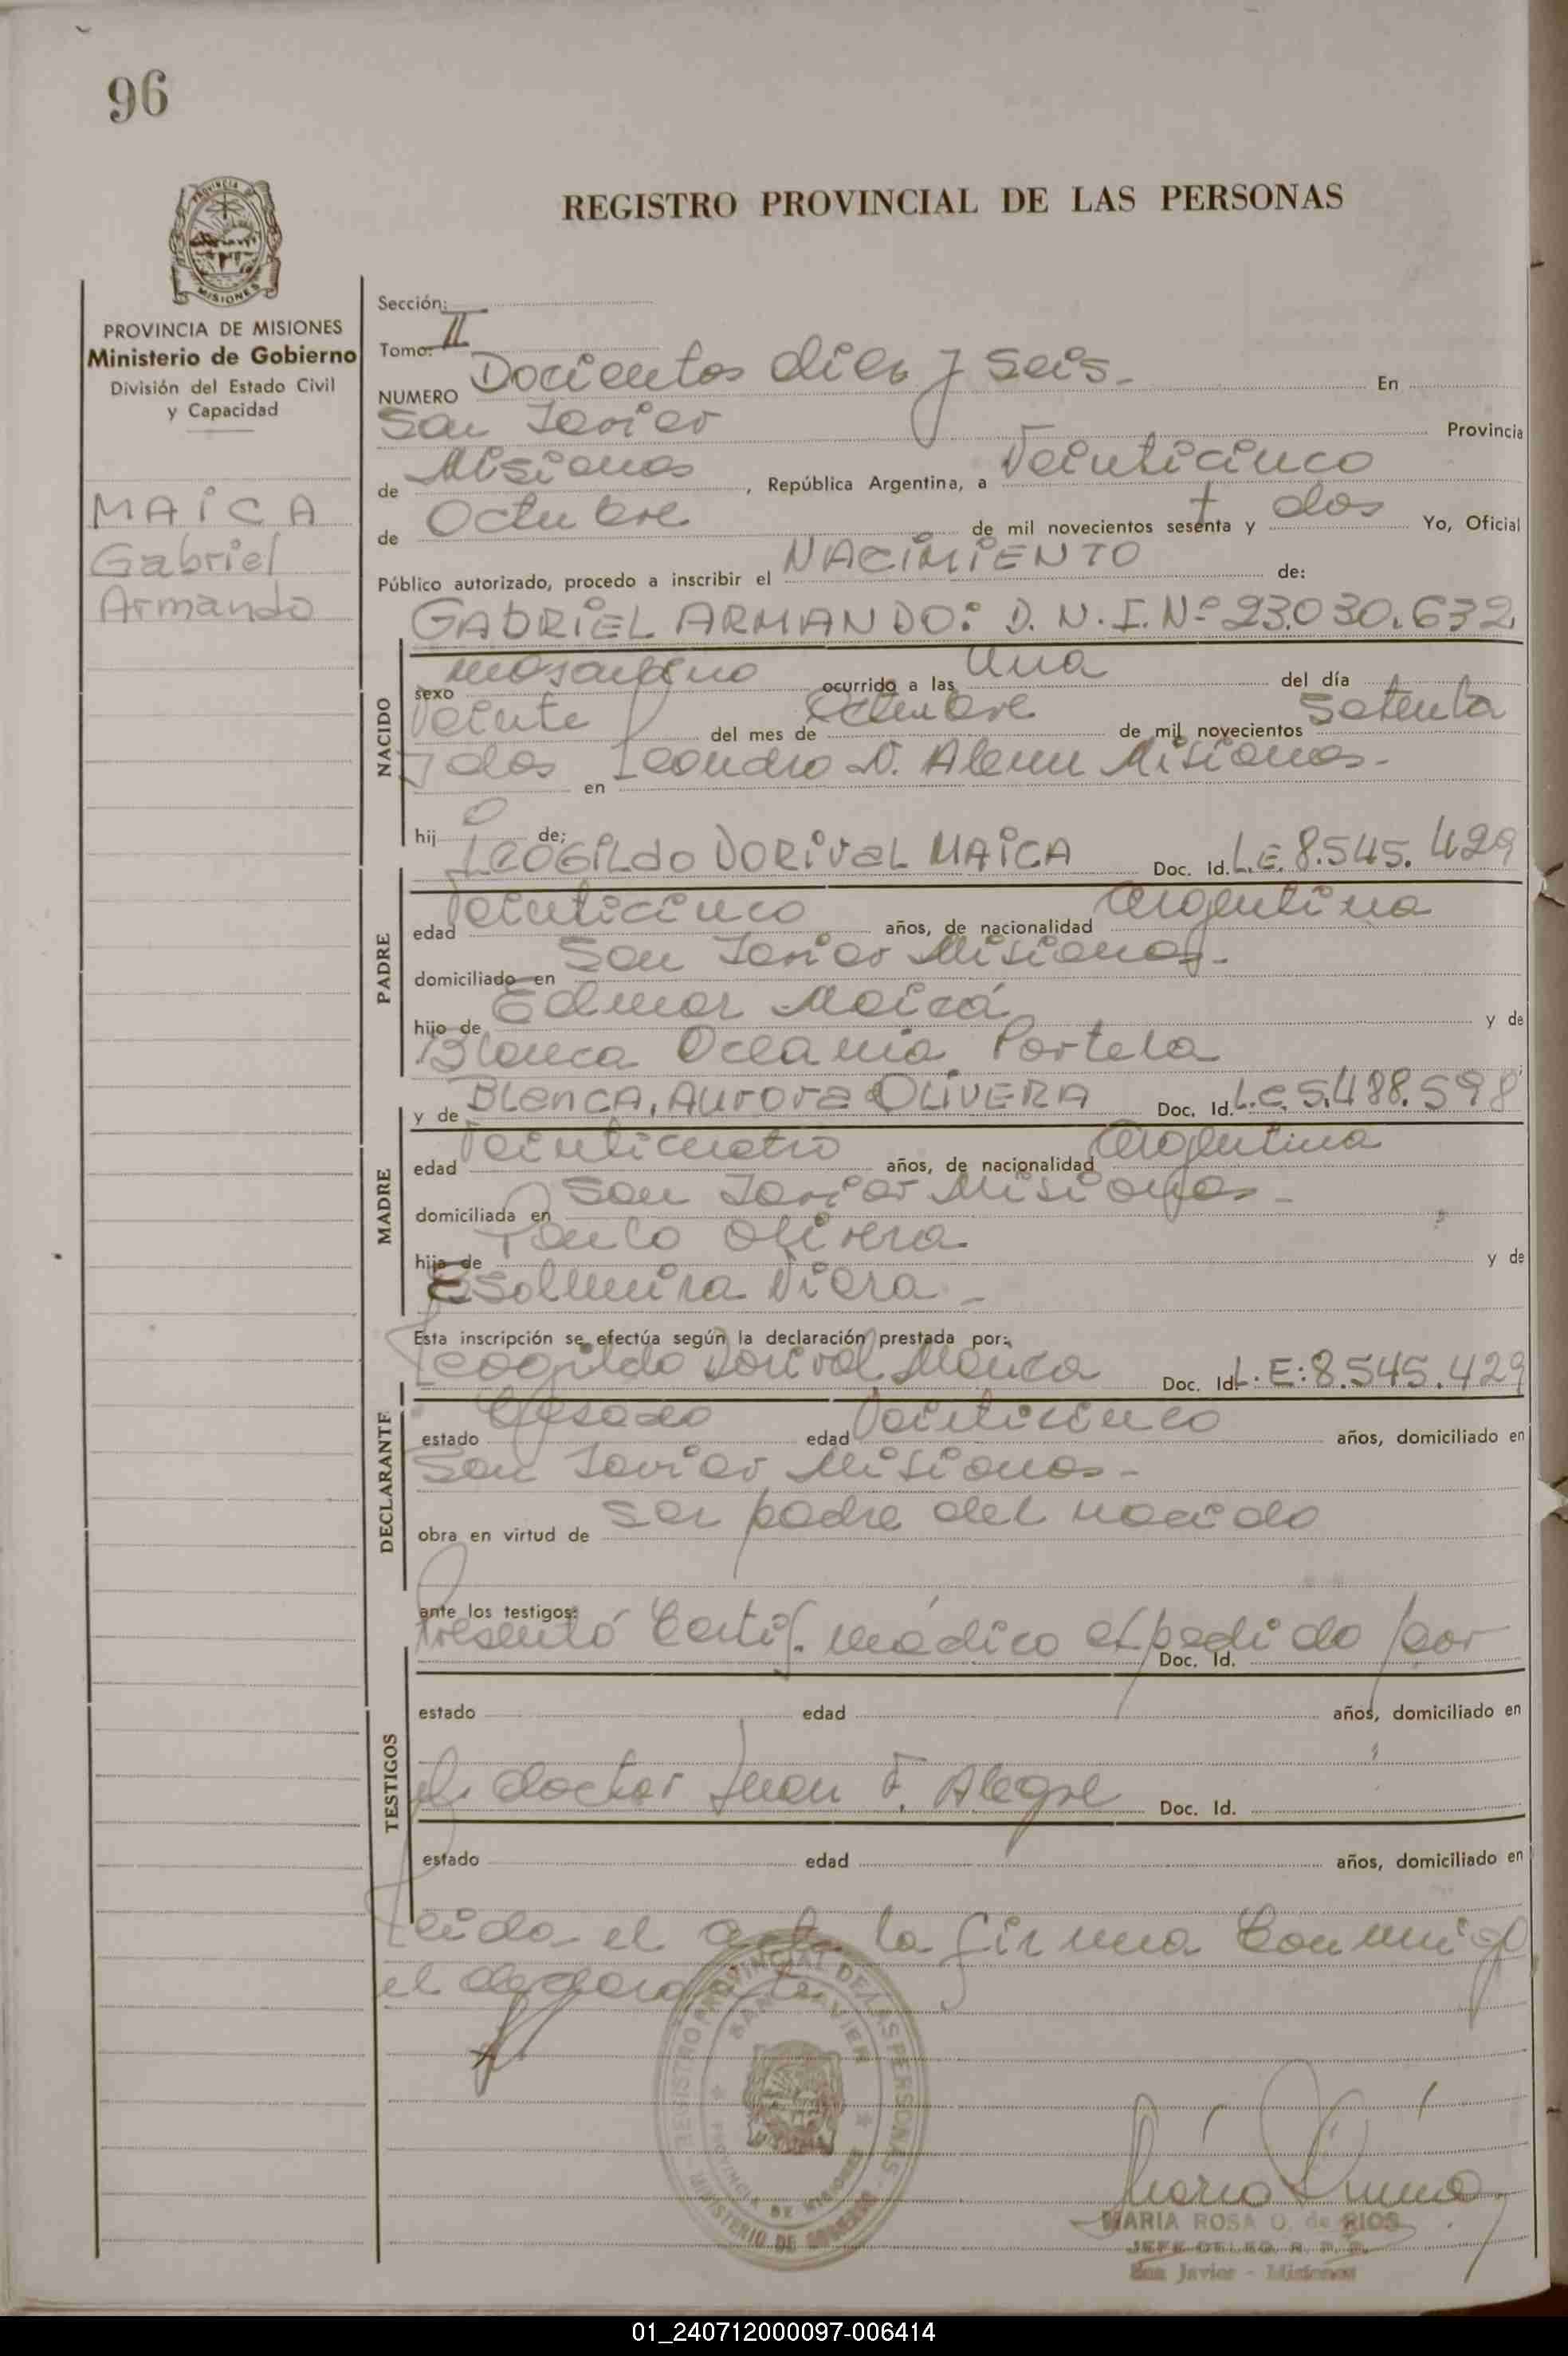 96
REGISTRO PROVINCIAL DE LAS PERSONAS
PROVINCIA DE MISIONES
Ministerio de Gobierno
División del Estado Civil
y Capacidad
MAICA
Gabriel
Armando
Sección:
Tomo: II
NUMERO Docientos diez y seis.- En
San Javier Provincia
de Misiones, República Argentina, a Veinticinco
de Octubre de mil novecientos sesenta y † dos Yo, Oficial
Público autorizado, procedo a inscribir el NACIMIENTO de:
GABRIEL ARMANDO: D.N.I.Nº 23.030.632
NACIDO
sexo masculino ocurrido a las Una del día
Veinte del mes de Octubre de mil novecientos Setenta
y dos en Leandro N. Alem Misiones.-
hijo de:
LEOGILdO DORIVaL MAICA Doc. Id. L.E. 8.545.429
PADRE
edad Veinticinco años, de nacionalidad Argentina
domiciliado en San Javier Misiones.-
hijo de Edmar Maicá y de
Blanca Oceania Portela
y de BLanCA, AUrOra OLIVERA Doc. Id. L.C. 5.488.598
MADRE
edad Veinticuatro años, de nacionalidad Argentina
domiciliada en San Javier Misiones-
hija de Paulo Olivera y de
Esolmira Viera-
Esta inscripción se efectúa según la declaración prestada por:
Leogildo Dorival Maica Doc. Id. L.E: 8.545.429
DECLARANTE
estado Casado edad Veinticinco años, domiciliado en
San Javier Misiones-
obra en virtud de ser padre del nacido
ante los testigos:
Presentó Certif. médico expedido por
Doc. Id.
TESTIGOS
estado edad años, domiciliado en
el doctor Juan F. Alegre Doc. Id.
estado edad años, domiciliado en
Leida el acta la firma Conmigo
el declarante
REGISTRO PROVINCIAL DE LAS PERSONAS
SAN JAVIER
PROVINCIA DE MISIONES
MINISTERIO DE GOBIERNO
MARIA ROSA O. de RIOS
JEFE DELEG. R. P. P.
San Javier - Misiones
01_240712000097-006414